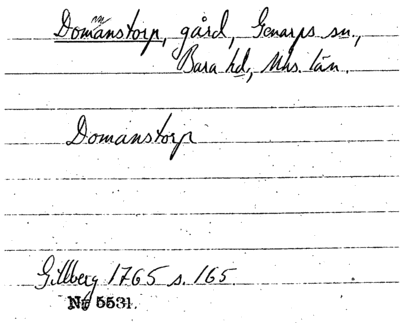 Domänstorp, gård, Genarps sn.,
Bara hd, Mhs. län.
Domanstorp
Gillberg 1765 s. 165.
Ny 5531.